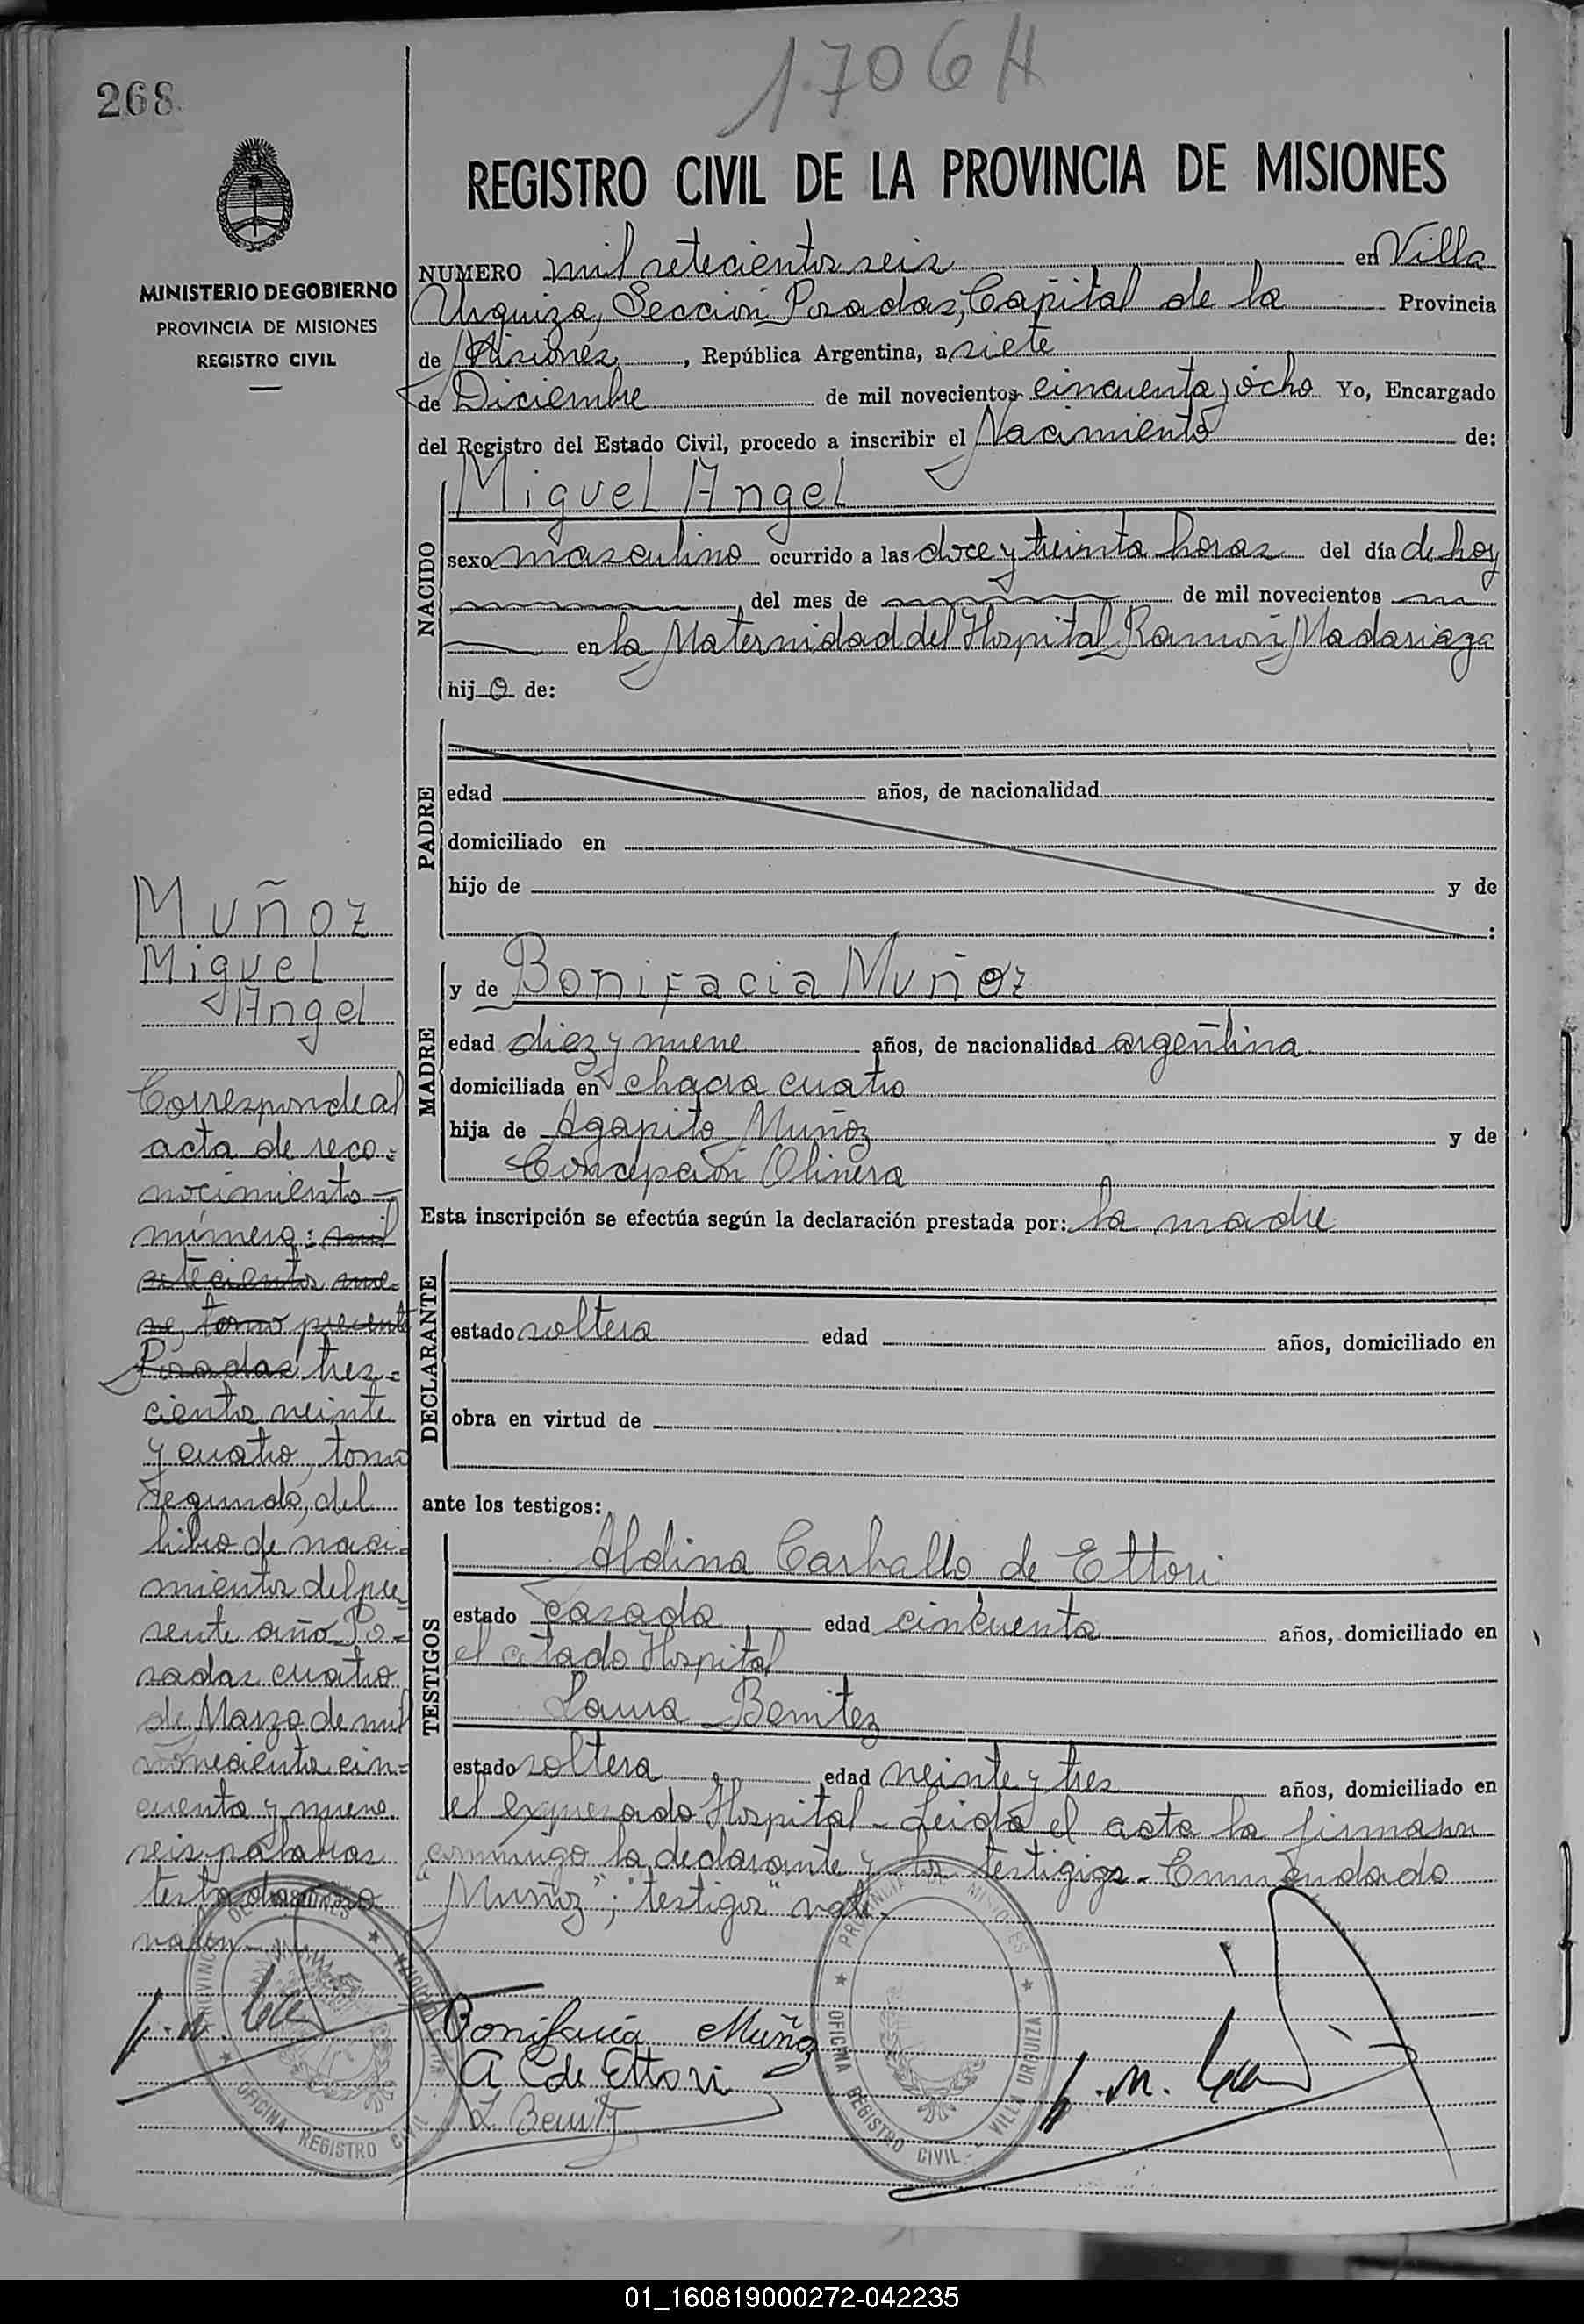 1706 H
268
REGISTRO CIVIL DE LA PROVINCIA DE MISIONES
MINISTERIO DE GOBIERNO
PROVINCIA DE MISIONES
REGISTRO CIVIL
NUMERO mil setecientos seis en Villa
Urquiza, Sección Posadas, Capital de la Provincia
de Misiones, República Argentina, a siete
de Diciembre de mil novecientos cincuenta y ocho Yo, Encargado
del Registro del Estado Civil, procedo a inscribir el Nacimiento de:
NACIDO
Miguel Angel
sexo masculino ocurrido a las doce y treinta horas del día de hoy
del mes de de mil novecientos
en la Maternidad del Hospital Ramón Madariaga
hijo de:
PADRE
edad años, de nacionalidad
domiciliado en
hijo de y de
:
MADRE
y de Bonifacia Muñoz
edad diez y nueve años, de nacionalidad argentina
domiciliada en chacra cuatro
hija de Agapito Muñoz y de
Concepción Olivera
Esta inscripción se efectúa según la declaración prestada por: la madre
DECLARANTE
estado soltera edad años, domiciliado en
obra en virtud de
ante los testigos:
TESTIGOS
Aldina Carballo de Ettori
estado casada edad cincuenta años, domiciliado en
el citado Hospital
Laura Benitez
estado soltera edad veinte y tres años, domiciliado en
el expresado Hospital - Leída el acta la firmaron
conmigo la declarante y los testigos - Enmendado
"Muñoz"; "testigos" vale.
Muñoz
Miguel
Angel
Corresponde al
acta de reco-
nocimiento
número: mil
setecientos nue-
ve, tomo presente
Posadas tres-
cientos veinte
y cuatro, tomo
segundo, del
libro de naci-
mientos del pre-
sente año Po-
sadas cuatro
de Marzo de mil
novecientos cin-
cuenta y nueve.
seis palabras
testadas no
valen -
Bonifacia Muñoz
A C de Ettori
L Benitez
PROVINCIA DE MISIONES
OFICINA REGISTRO CIVIL
PROVINCIA DE MISIONES
OFICINA REGISTRO CIVIL - VILLA URQUIZA
01_160819000272-042235